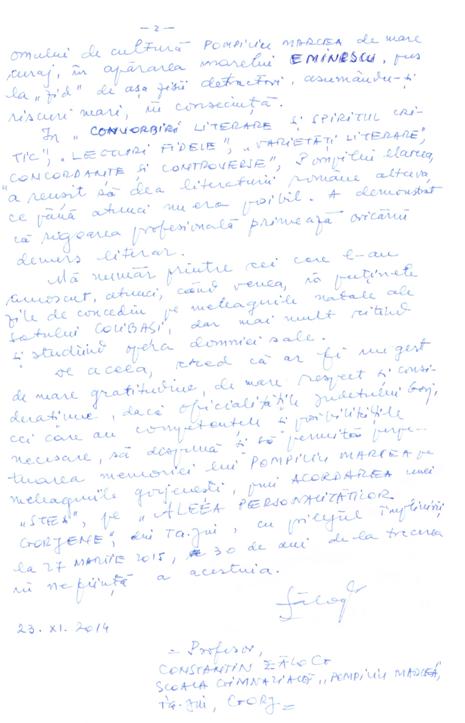 — 2 —
omului de cultură POMPILIU MARCEA de mare
curaj, în apărarea marelui EMINESCU, pus
la „zid" de așa ziși detractori, asumându-și
riscuri mari, în consecință.
În „CONVORBIRI LITERARE și SPIRITUL CRI-
TIC", „LECTURI FIDELE", „VARIETĂȚI LITERARE",
„CONCORDANȚE și CONTROVERSE", Pompiliu Marcea,
a reușit să dea literaturii române altceva,
ce până atunci nu era posibil. A demonstrat
că rigoarea profesională primează oricărui
demers literar.
Mă număr printre cei care l-au
cunoscut, atunci, când venea, în puținele
zile de concediu pe meleagurile natale ale
satului COLIBAȘI, dar mai mult citind
și studiind opera domniei sale.
De aceea, cred că ar fi un gest
de mare gratitudine, de mare respect și consi-
derațiune, dacă oficialitățile județului Gorj,
cei care au competențele și posibilitățile
necesare, să dispună și să permită perpe-
tuarea memoriei lui POMPILIU MARCEA pe
meleagurile gorjenești, prin ACORDAREA unei
„STEA", pe „ALEEA PERSONALITĂȚILOR
GORJENE", din Tg-Jiu, cu prilejul împlinirii,
la 27 MARTIE 2015, a 30 de ani de la trecerea
în neființă a acestuia.
23. XI. 2014
= Profesor,
CONSTANTIN ZĂLOG
ȘCOALA GIMNAZIALĂ „POMPILIU MARCEA",
TG-Jiu, GORJ =